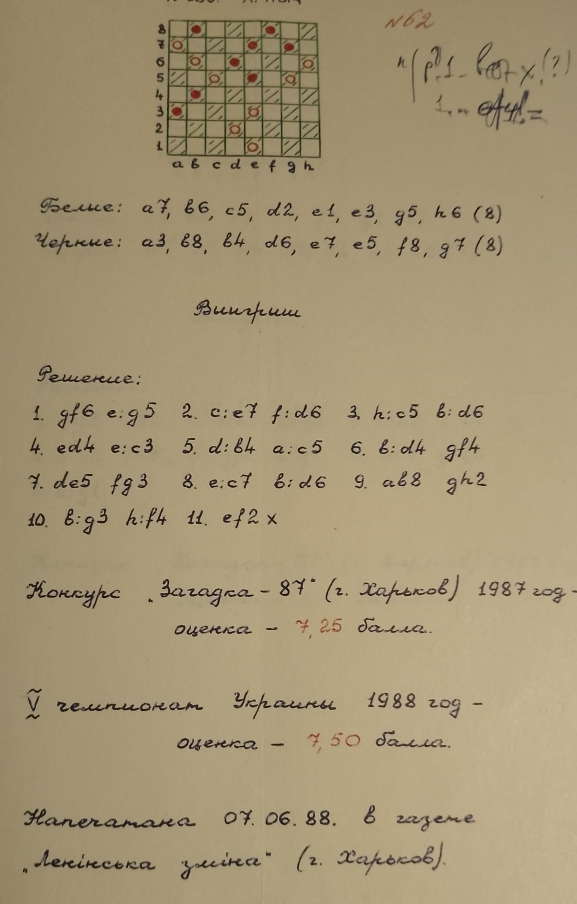 N62
8
7
6
5
4
3
2
1
a b c d e f g h
Белые: a7, b6, c5, d2, e1, e3, g5, h6 (8)
Черные: a3, b8, b4, d6, e7, e5, f8, g7 (8)
Виигриш
Решение:
1. gf6 e:g5 2. c:e7 f:d6 3. h:c5 b:d6
4. ed4 e:c3 5. d:b4 a:c5 6. b:d4 gf4
7. de5 fg3 8. e:c7 b:d6 9. ab8 gh2
10. b:g3 h:f4 11. ef2 x
Конкурс „Загадка - 87" (г. Харьков) 1987 год -
оценка - 7,25 балла.
V чемпионат Украины 1988 год -
оценка - 7,50 балла.
Напечатана 07.06.88. в газете
„Ленінська зміна" (г. Харьков).